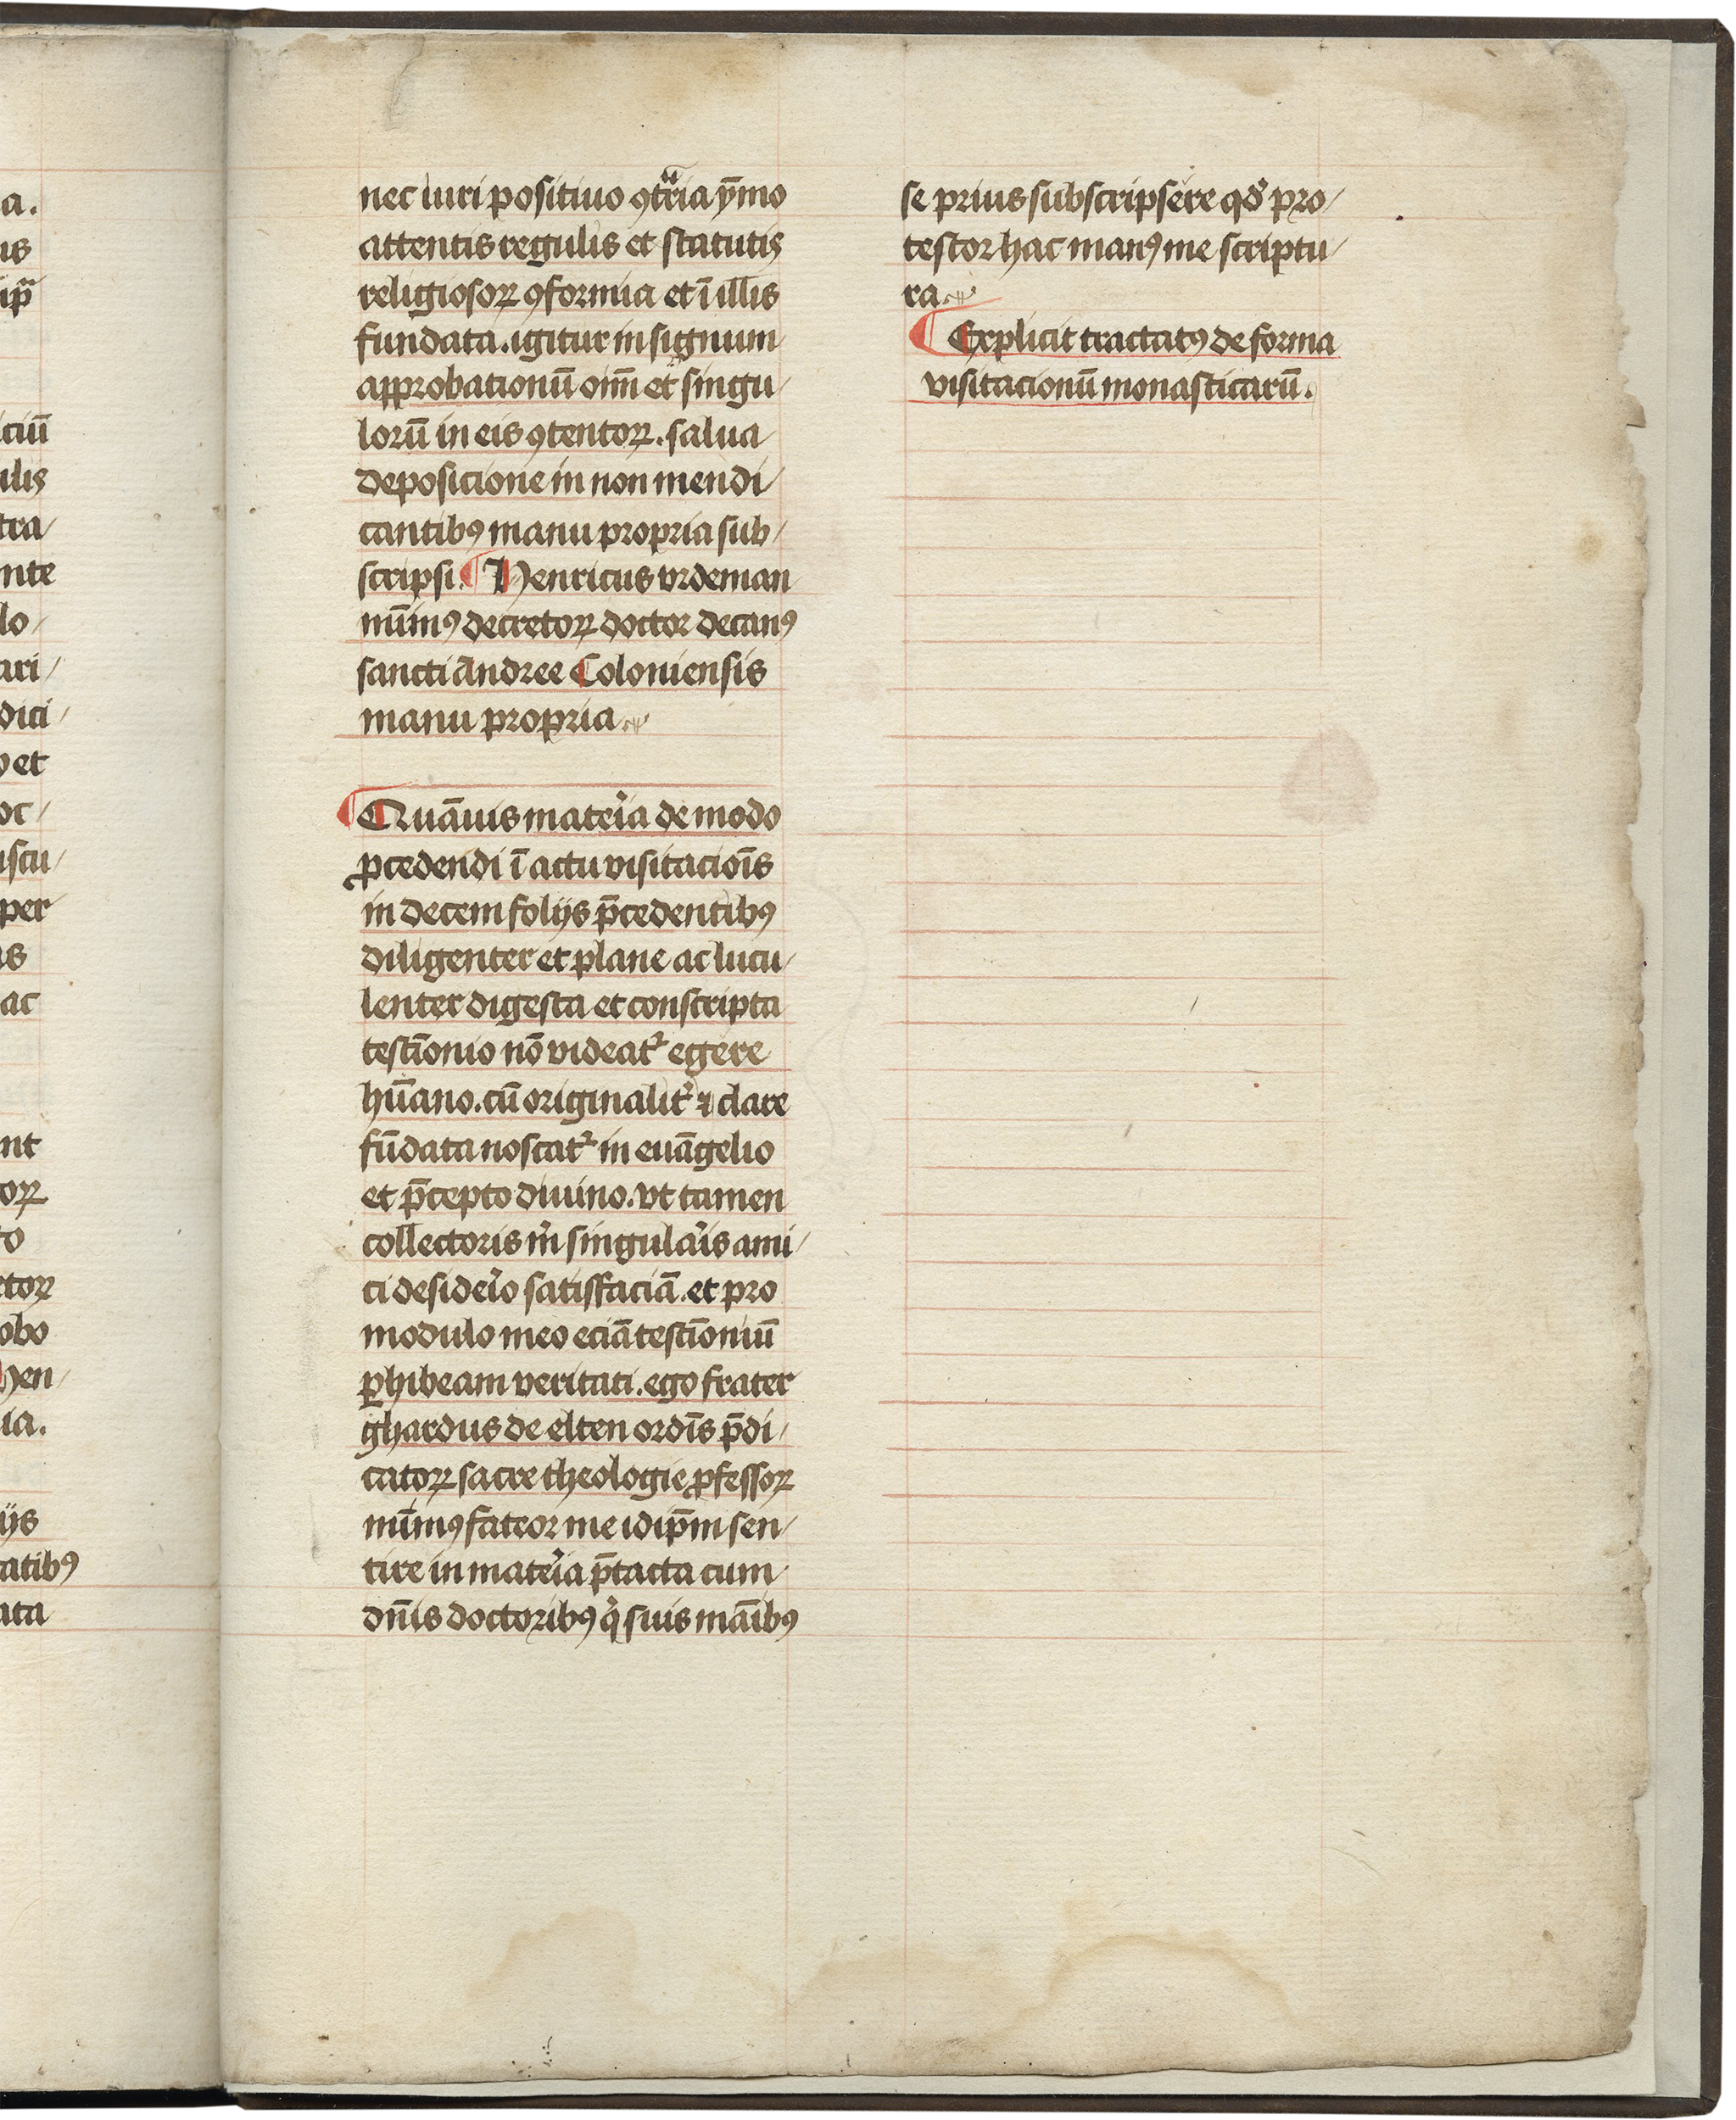 a.
us
ip̄a
ciū
ulis
tra/
nte
lo/
ari/
dici/
et
oc/
uscu/
per
is
ac
nt
oꝝ
to
ctoꝝ
obo
hen/
ia.
ijs
tatibꝰ
ata
nec iuri positiuo ꝯtrͣia ȳmo
attentis regulis et statutis
religiosoꝝ ꝯformia et ī illis
fundata. igitur in signum
approbationū om̄ et singu/
lorū in eis ꝯtentoꝝ. salua
deposicione in non mendi/
cantibꝰ manu propria sub/
scripsi. ¶ Henricus vrdeman
mī̄mꝰ decretoꝝ doctor decanꝰ
sancti Andree Coloniensis
manu propria.
¶ Quāuis mater̉ia de modo
ꝓcedendi ī actu visitaciōis
in decem folijs p̄cedentibꝰ
diligenter et plane ac lucu/
lenter digesta et conscripta
testīonio nō videat᷑ egere
hūano. cū originalit̉ ⁊ clare
fūdata noscat᷑ in euāgelio
et p̄cepto diuino. vt tamen
collectoris m̉ singular̉is ami/
ci desider̉o satisfaciā. et pro
modulo meo eciā testīoniū
ꝑhibeam veritati. ego frater
ghardus de elten ordīs p̄di/
catoꝝ sacre theologie ꝓfessoꝝ
mī̄mꝰ fateor me idip̄m sen/
tire in mater̉ia p̄tacta cum
dn̄is doctoribꝰ qͥ suis maībꝰ
se prius subscripser̄e qd̓ pro/
testor hac manꝰ me scriptu/
ra.
¶ Explicit tractatꝰ de forma
visitacionū monasticarū.